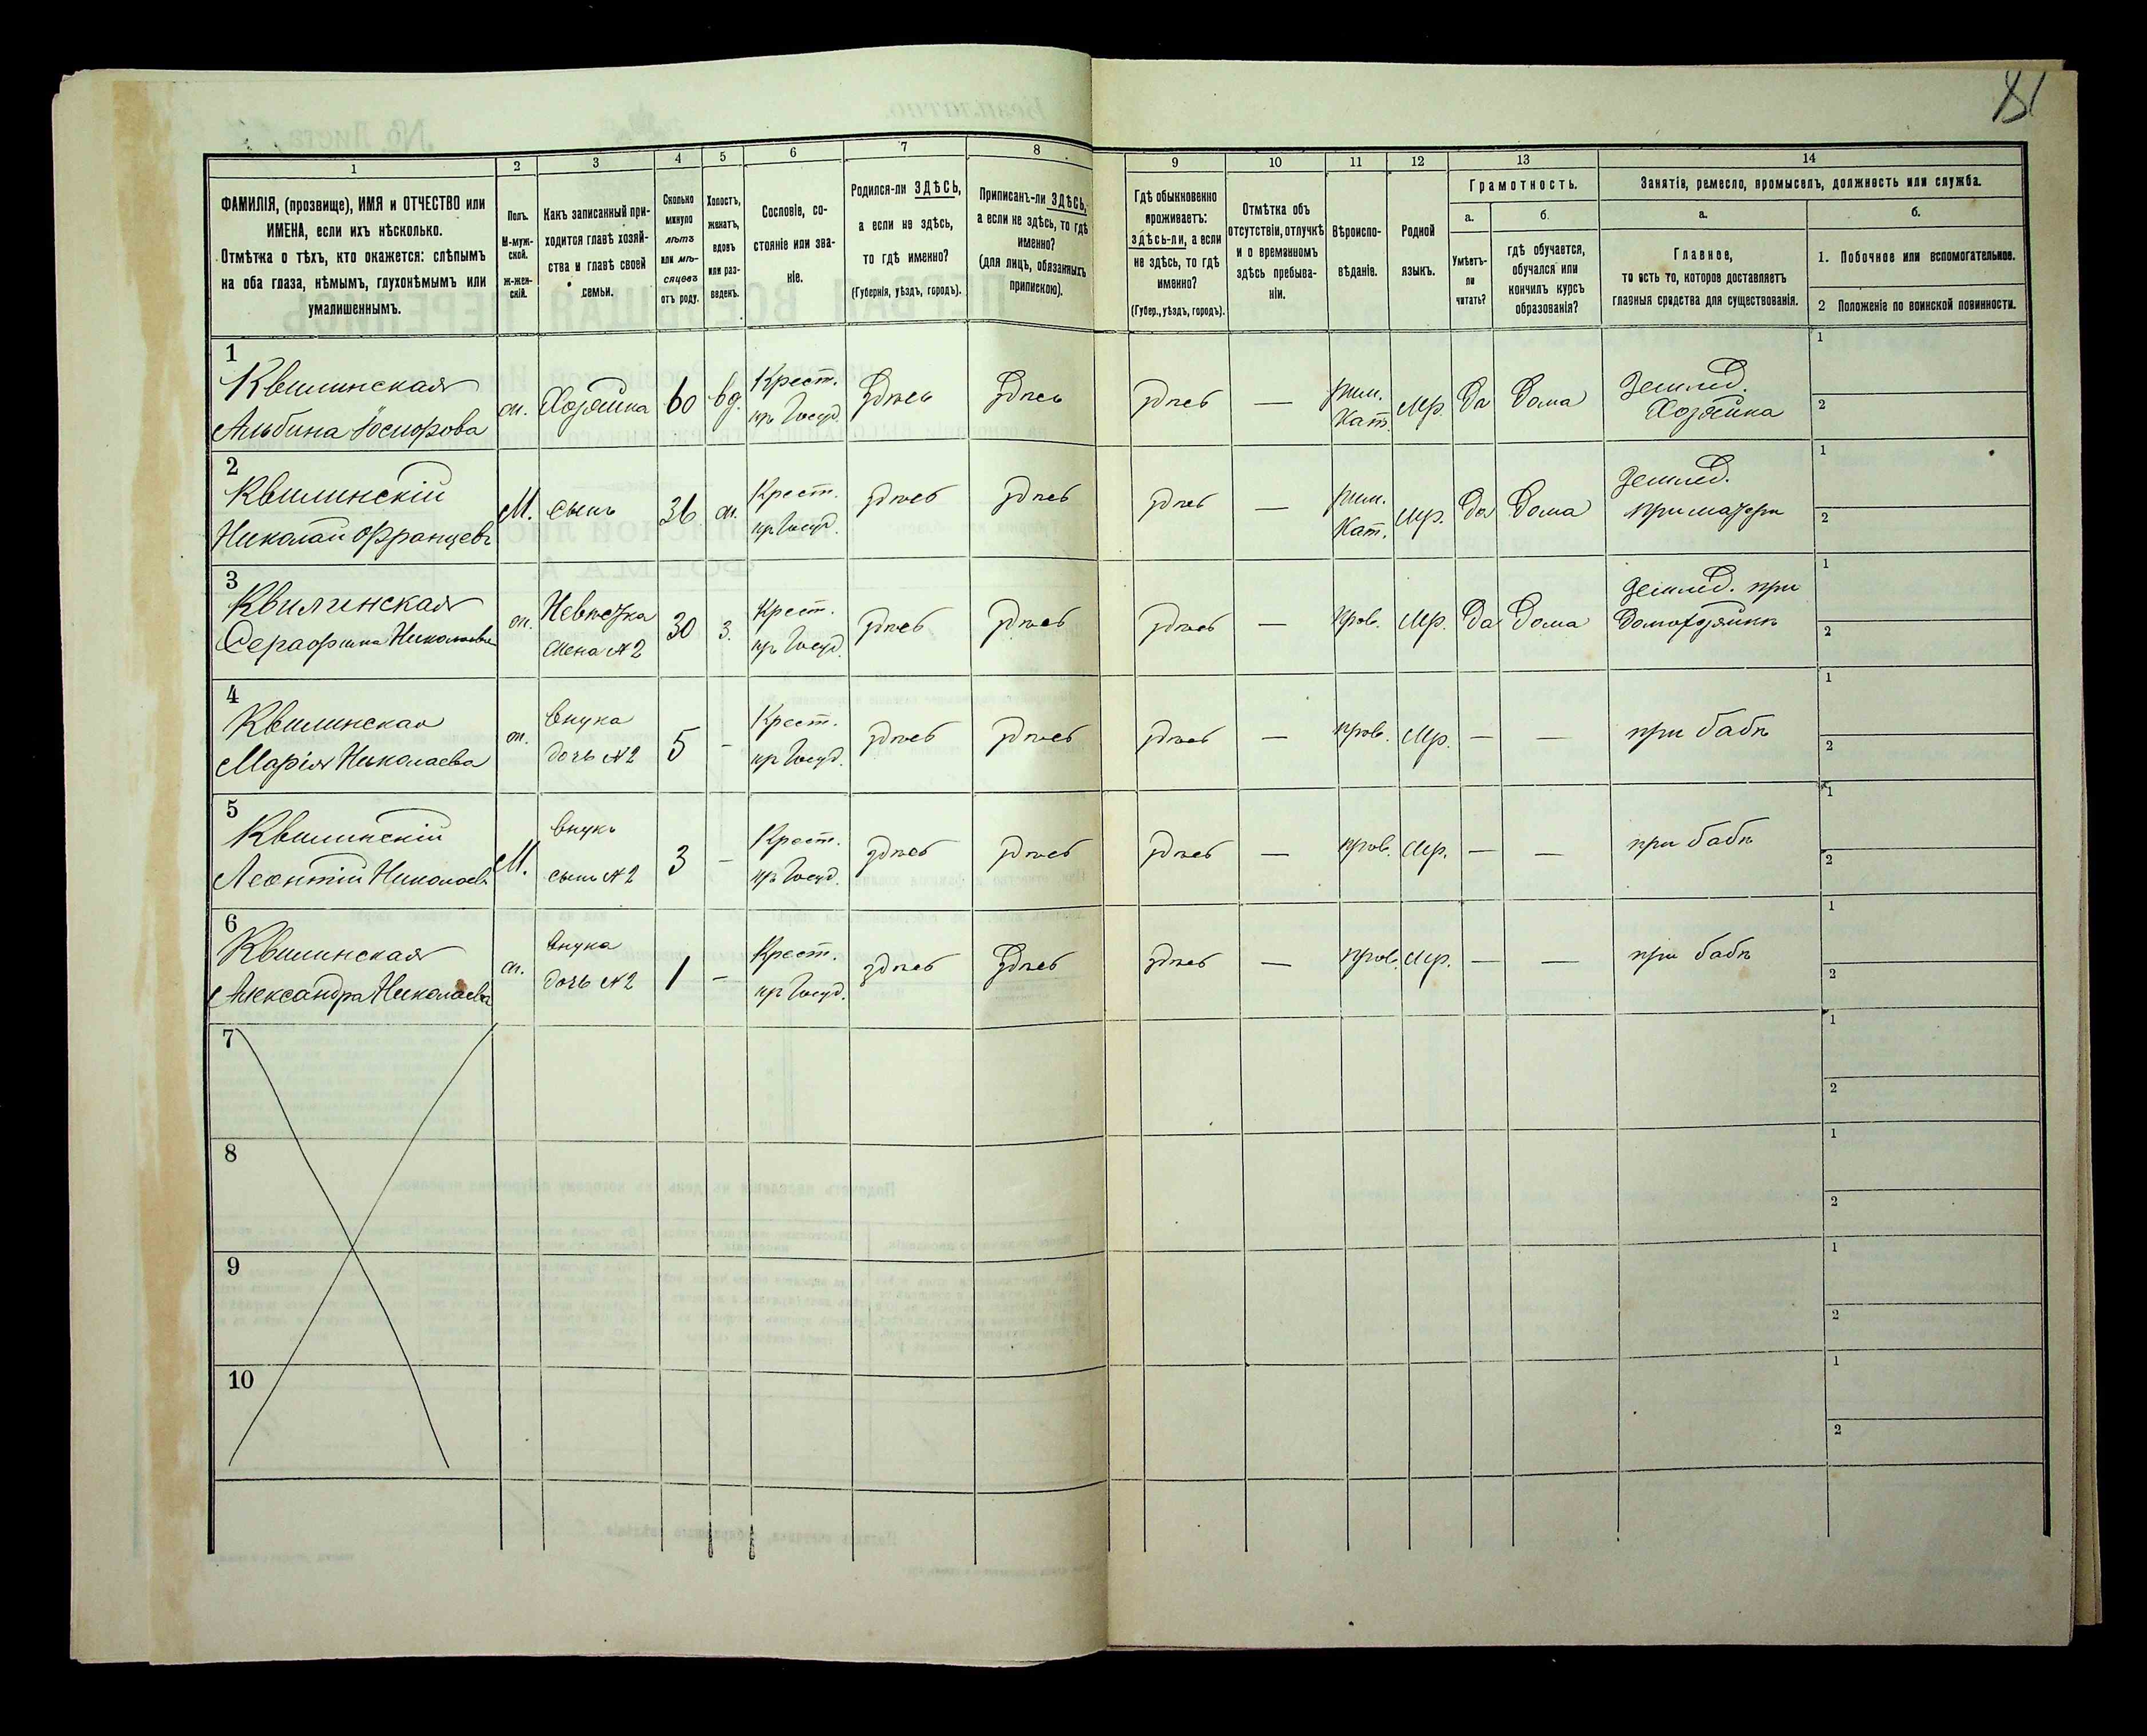 81
1
2
3
4
5
6
7
8
9
10
11
12
13
14
ФАМИЛІЯ, (прозвище), ИМЯ и ОТЧЕСТВО или
ИМЕНА, если ихъ нѣсколько.
Отмѣтка о тѣхъ, кто окажется: слѣпымъ
на оба глаза, нѣмымъ, глухонѣмымъ или
умалишеннымъ.
Полъ.
М-муж-
ской.
ж-жен-
скій.
Какъ записанный при-
ходится главѣ хозяй-
ства и главѣ своей
семьи.
Сколько
минуло
лѣтъ
или мѣ-
сяцевъ
отъ роду.
Холостъ,
женатъ,
вдовъ
или раз-
веденъ.
Сословіе, со-
стояніе или зва-
ніе.
Родился-ли ЗДѢСЬ,
а если не здѣсь,
то гдѣ именно?
(Губернія, уѣздъ, городъ).
Приписанъ-ли ЗДѢСЬ,
а если не здѣсь, то гдѣ
именно?
(для лицъ, обязанныхъ
припискою).
Гдѣ обыкновенно
проживаетъ:
здѣсь-ли, а если
не здѣсь, то гдѣ
именно?
(Губер., уѣздъ, городъ).
Отмѣтка объ
отсутствіи, отлучкѣ
и о временномъ
здѣсь пребыва-
ніи.
Вѣроиспо-
вѣданіе.
Родной
языкъ.
Грамотность.
а.
б.
Умѣетъ-
ли
читать?
гдѣ обучается,
обучался или
кончилъ курсъ
образованія?
Занятіе, ремесло, промыселъ, должность или служба.
а.
б.
Главное,
то есть то, которое доставляетъ
главныя средства для существованія.
1. Побочное или вспомогательное.
2 Положеніе по воинской повинности.
1
Квилинская
Альбина Іосифова
ж.
Хозяйка
60
вд.
Крест.
из Госуд.
Здѣсь
Здѣсь
здѣсь
—
рим.
Кат.
Мр.
Да
Дома
Землед.
Хозяйка
1
2
2
Квилинскій
Николай Францевъ
М.
сынъ
36
ж.
Крест.
из Госуд.
здѣсь
здѣсь
здѣсь
—
рим.
Кат.
Мр.
Да
Дома
Землед.
при матери
1
2
3
Квилинская
Серафима Николаева
ж.
Невѣстка
жена №2
30
з.
Крест.
из Госуд.
здѣсь
здѣсь
здѣсь
—
прав.
Мр.
Да
Дома
Землед. при
Домохозяинѣ
1
2
4
Квилинская
Марія Николаева
ж.
внука
дочь №2
5
-
Крест.
из Госуд.
здѣсь
здѣсь
здѣсь
—
прав.
Мр.
—
—
при бабѣ
1
2
5
Квилинскій
Леонтій Николаевъ
М.
внукъ
сынъ №2
3
-
Крест.
из Госуд.
здѣсь
здѣсь
здѣсь
—
прав.
Мр.
—
—
при бабѣ
1
2
6
Квилинская
Александра Николаева
ж.
внука
дочь №2
1
-
Крест.
из Госуд.
здѣсь
Здѣсь
здѣсь
—
прав.
Мр.
—
—
при бабѣ
1
2
7
1
2
8
1
2
9
1
2
10
1
2